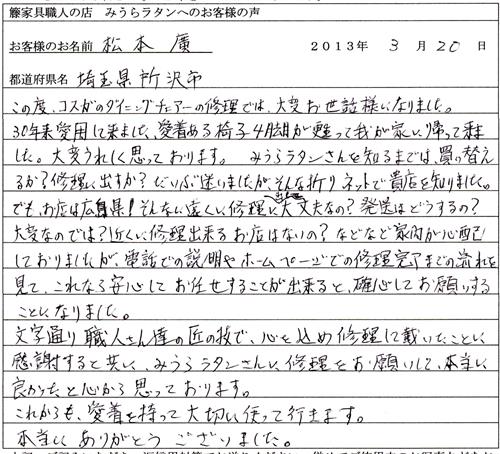 籐家具職人の店　みうらラタンへのお客様の声
お客様のお名前　松本 廣　2013年 3月20日
都道府県名　埼玉県所沢市
この度、コスガのダイニングチェアーの修理では、大変お世話様になりました。
30年来愛用して来ました、愛着ある椅子4脚が甦って我が家に帰って来ま
した。大変うれしく思っております。　みうらラタンさんを知るまでは、買っ替え
るか?修理に出すか?だいぶ迷いましたが、そんな折りネットで貴店を知りました。
でも、お店は広島県!そんな遠くに修理に大丈夫なの?発送はどうするの?
大変なのでは?近くに修理出来るお店はないの?などなど家内が心配
しておりましたが、電話での説明やホームページでの修理完了までの流れを
見て、これなら安心してお任せすることが出来ると、確心してお願いする
ことになりました。
文字通り職人さん達の匠の技で、心を込め修理して戴いたことに
感謝すると共に、みうらラタンさんに、修理をお願いして、本当に
良かったと心から思っております。
これからも、愛着を持って大切に使って行きます。
本当にありがとうございました。